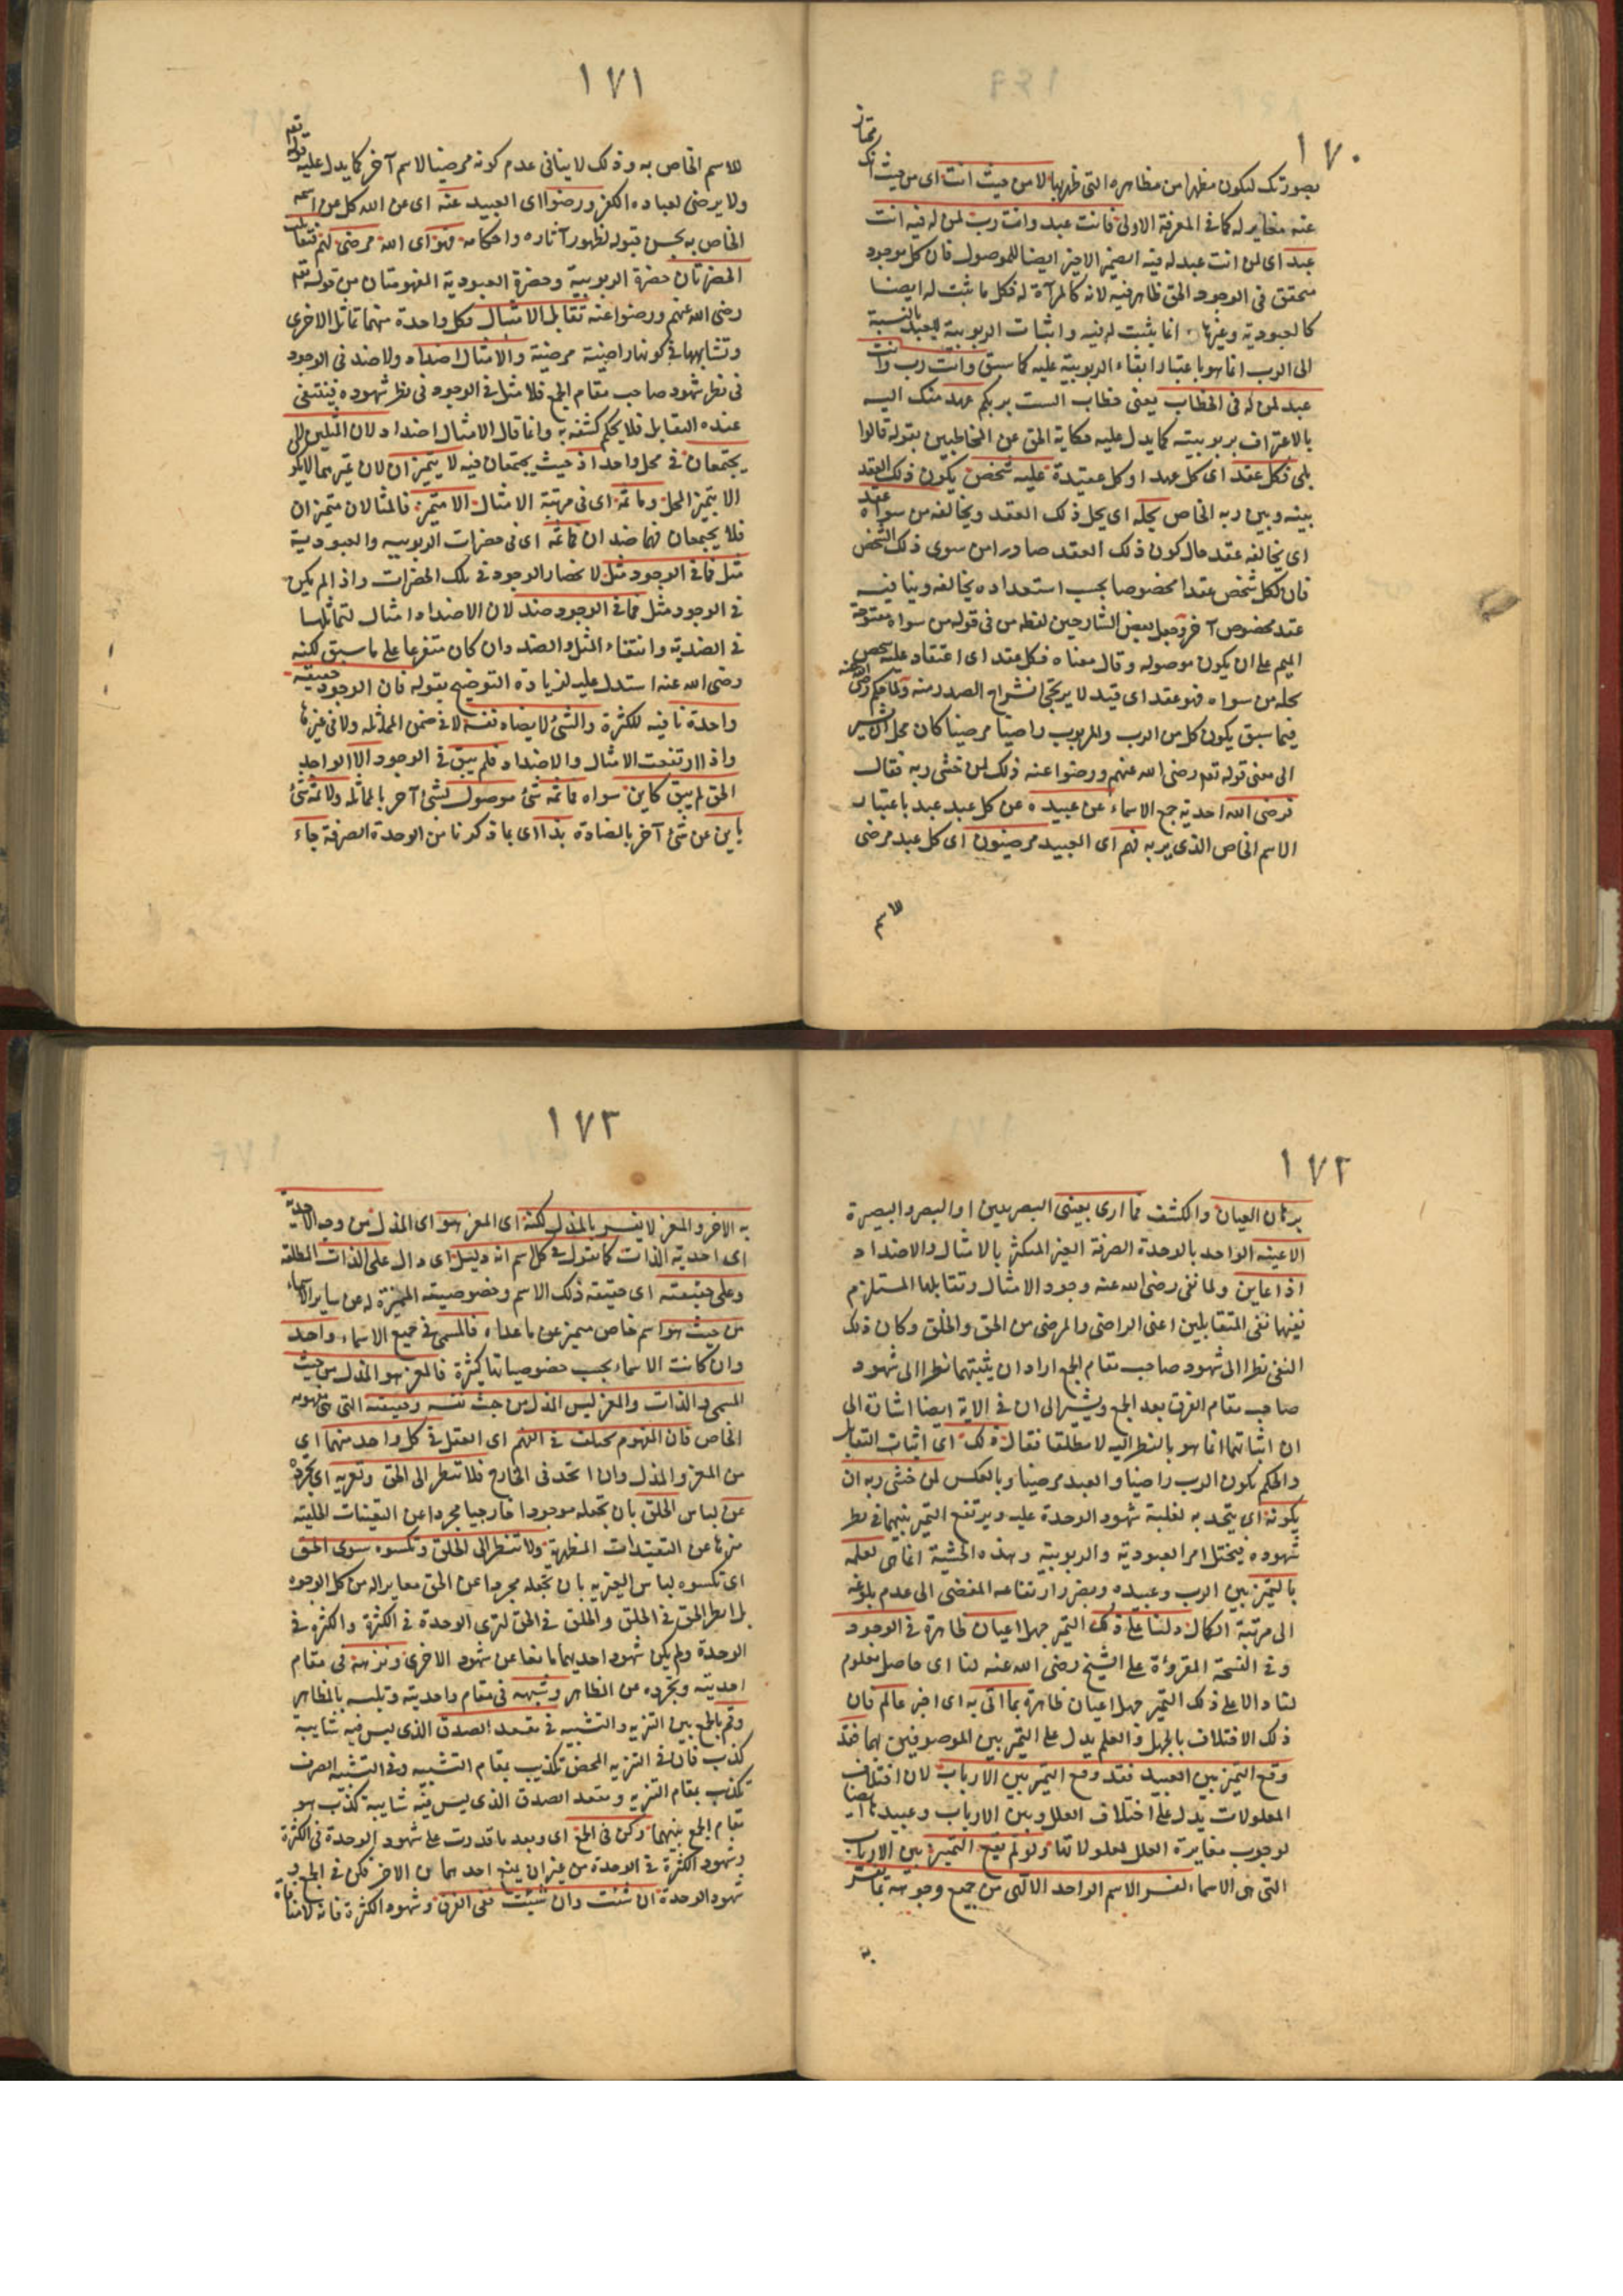 ١٧٠
بصورتك لتكون مظهرا من مظاهره التي ظهر بها لا من حيث انت اى من حيث انك ممتاز
عنه مغاير له كما في المعرفة الاولى فانت عبد وانت رب لمن له فيه انت
عبد اى لمن انت عبد له فيه الضمير الاخير ايضا للموصول فان كل موجود
متحقق في الوجود الحق ظاهر فيه لانه كالمرآة له فكل ما ثبت له ايضا
كالعبودية وغيرها انما يثبت له فيه واثبات الربوبية للعبد بالنسبة
الى الرب انما هو باعتبار ابقاء الربوبية عليه كما سبق وانت رب وانت
عبد لمن له في الخطاب يعنى خطاب الست بربكم عهد منك اليه
بالاعتراف بربوبيته كما يدل عليه حكاية الحق عن المخاطبين بقوله قالوا
بلى فكل عقد اى كل عهد او كل عقيدة عليه شخص يكون ذلك العقد
بينه وبين ربه الخاص يحله اى يحل ذلك العقد ويخالفه من سواه عقد
اى يخالفه عقد حال كون ذلك العقد صادرا من سوى ذلك الشخص
فان لكل شخص عقدا مخصوصا بحسب استعداده يخالفه وينافيه
عقد مخصوص آخر وجعل بعض الشارحين لفظه من في قوله من سواه مفتوحة
الميم على ان يكون موصوله وقال معناه فكل عقد اى اعتقاد عليه شخص
يحله من سواه فهو عقد اى قيد لا يرتجى انشراح الصدر منه ولما حكم رضى الله عنه
فيما سبق بكون كل من الرب والمربوب راضيا مرضيا كان محل ان يشير
الى معنى قوله تعم رضى الله عنهم ورضوا عنه ذلك لمن خشى ربه فقال
فرضى الله احدية جمع الاسماء عن عبيده عن كل عبد عبد باعتبار
الاسم الخاص الذى يربه فهم اى العبيد مرضيون اى كل عبد مرضى
للاسم
١٧١
للاسم الخاص به وذلك لا ينافى عدم كونه مرضيا لاسم آخر كما يدل عليه قوله تعم
ولا يرضى لعباده الكفر ورضوا اى العبيد عنه اى عن الله كل عن اسمه
الخاص به بحسن قبوله لظهور آثاره واحكامه فهو اى الله مرضى لهم فتقابلت
الحضرتان حضرة الربوبية وحضرة العبودية المفهومتان من قوله تعم
رضى الله عنهم ورضوا عنه تقابل الامثال فكل واحدة منهما تماثل الاخرى
وتشابهها في كونها راضية مرضية والامثال اضداد ولا ضد في الوجود
في نظر شهود صاحب مقام الجمع فلا مثل في الوجود في نظر شهوده فينتفى
عنده التقابل فلا يحكم كشفه به وانما قال الامثال اضداد لان المثلين لا
يجتمعان في محل واحد اذ حيث يجتمعان فيه لا يتميزان لان تميزهما لا يكون
الا بتميز المحل وما ثمه اى في مرتبة الامثال الا متميز فالمثالان متميزان
فلا يجتمعان فهما ضدان فما ثمه اى في حضرات الربوبيه والعبودية
مثل فما في الوجود مثل لانحصار الوجود في تلك الحضرات واذا لم يكن
في الوجود مثل فما في الوجود ضد لان الاضداد امثال لتماثلها
في الضدية وانتفاء المثل والضد وان كان متفرعا على ما سبق لكنه
رضى الله عنه استدل عليه لزيادة التوضيح بقوله فان الوجود حقيقة
واحدة نافيه للكثرة والشئ لا يضاد نفسه لا في ضمن المماثله ولا في غيرها
واذا ارتفعت الامثال والاضداد فلم يبق في الوجود الا الواحد
الحق لم يبق كاين سواه فما ثمه شئ موصول بشئ آخر بالمماثله ولا ثمه شئ
باين عن شئ آخر بالمضادة بذا اى بما ذكرنا من الوحدة الصرفة جاء
١٧٢
برهان العيان والكشف فما ارى بعينى البصريين او البصر والبصيرة
الا عينه الواحد بالوحدة الصرفة الغير المتكثر بالامثال والاضداد
اذا عاين ولما نفى رضى الله عنه وجود الامثال وتقابلها المستلزم
نفيها نفى المتقابلين اعنى الراضى والمرضى من الحق والخلق وكان ذلك
النفى نظرا الى شهود صاحب مقام الجمع اراد ان يثبتهما نظرا الى شهود
صاحب مقام الفرق بعد الجمع ويشير الى ان في الاية ايضا اشارة الى
ان اثباتهما انما هو بالنظر اليه لا مطلقا فقال ذلك اى اثبات التقابل
والحكم بكون الرب راضيا والعبد مرضيا وبالعكس لمن خشى ربه ان
يكونه اى يتحد به لغلبة شهود الوحدة عليه ويرتفع التميز بينهما في نظر
شهوده فيختل امر العبودية والربوبية وهذه الخشية انما هى لعلمه
بالتميز بين الرب وعبيده وبضرر ارتفاعه المفضى الى عدم بلوغه
الى مرتبة الكمال دلنا على ذلك التميز جهل اعيان ظاهرة في الوجود
وفي النسخة المقروءة على الشيخ رضى الله عنه لنا اى حاصل معلوم
لنا دالا على ذلك التميز جهل اعيان ظاهرة بما اتى به اى اخبر عالم فان
ذلك الاختلاف بالجهل والعلم يدل على التميز بين الموصوفين بهما فقد
وقع التميز بين العبيد فقد وقع التميز بين الارباب لان اختلاف
المعلولات يدل على اختلاف العلل وبين الارباب وعبيدها ايضا
لوجوب مغايرة العلل لمعلولاتها ولو لم يقع التميز بين الارباب
التى هى الاسماء لفسر الاسم الواحد الالهى من جميع وجوهه بما يفسر
به
١٧٣
به الاخر والمعز لا يفسر بالمذل لكنه اى المعز هو اى المذل من وجه الاحدية
اى احدية الذات كما تقول في كل اسم انه دليل اى دال على الذات المطلقة
وعلى حقيقته اى حقيقة ذلك الاسم وخصوصيته المميزة له عن ساير الاسماء
من حيث هو اسم خاص متميز عن ما عداه فالمسمى في جميع الاسماء واحد
وان كانت الاسماء بحسب خصوصياتها كثيرة فالمعز هو المذل من حيث
المسمى والذات والمعز ليس المذل من حيث نفسه وحقيقته التى هى مفهومه
الخاص فان المفهوم يختلف في الفهم اى العقل في كل واحد منهما اى
من المعز والمذل وان اتحد في الخارج فلا تنظر الى الحق وتعريه اى تجرده
عن لباس الخلق بان تجعله موجودا خارجيا مجردا عن التعينات الخلقية
منزها عن التقيدات المظهرية ولا تنظر الى الخلق وتكسوه سوى الحق
اى تكسوه لباس الغيرية بان تجعله مجردا عن الحق مغايرا له من كل الوجوه
بل انظر الحق في الخلق والخلق في الحق لترى الوحدة في الكثرة والكثرة في
الوحدة ولم يكن شهود احديهما مانعا عن شهود الاخرى ونزهه في مقام
احديته وتجرده من المظاهر وشبهه في مقام واحديته وتلبسه بالمظاهر
وقم بالجمع بين التنزيه والتشبيه في مقعد الصدق الذى ليس فيه شايبة
كذب فان في التنزيه المحض تكذيب بمقام التشبيه وفي التشبيه الصرف
تكذب بمقام التنزيه ومقعد الصدق الذى ليس فيه شايبة كذب هو
مقام الجمع بينهما وكن في الجمع اى وبعد ما قدرت على شهود الوحدة في الكثرة
وشهود الكثرة في الوحدة من غير ان يمنع احدهما من الاخر فكن في الجمع و
شهود الوحدة ان شئت وان شئت ففى الفرق وشهود الكثرة فانه لا منافاة